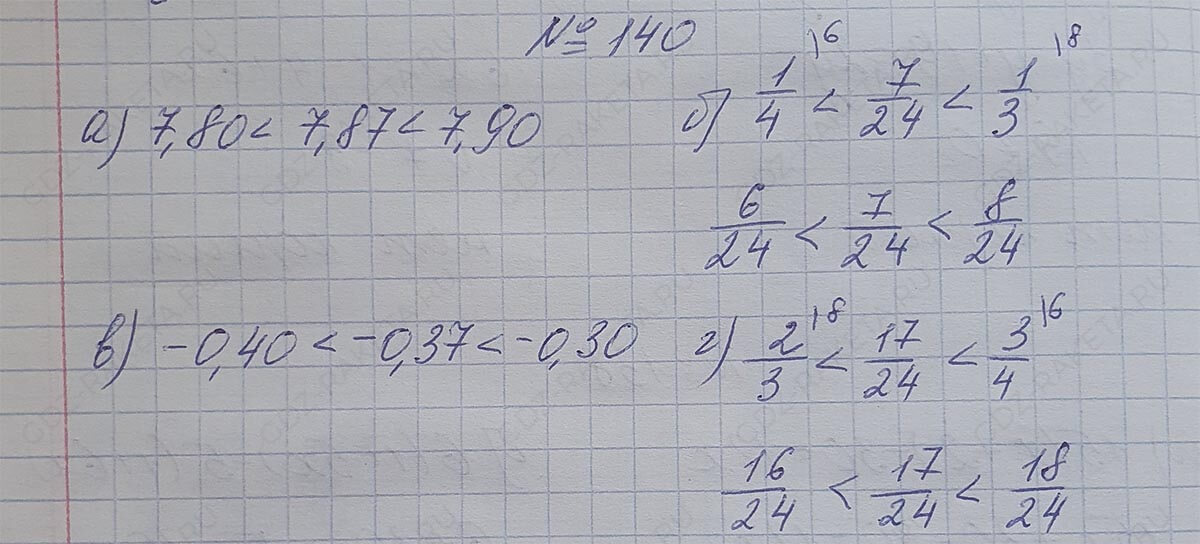 № 140
а) 7,80 < 7,87 < 7,90
б) 1/4 |6 < 7/24 < 1/3 |8
6/24 < 7/24 < 8/24
в) -0,40 < -0,37 < -0,30
г) 2/3 |8 < 17/24 < 3/4 |6
16/24 < 17/24 < 18/24